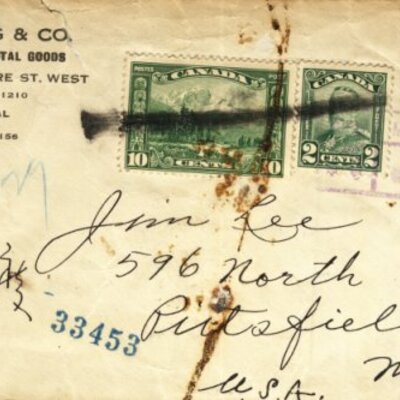 G & CO.
TAL GOODS
RE ST. WEST
1210
AL
156
POSTES POSTAGE
CANADA
10 CENTS 10
CANADA
2 CENTS 2
Jim Lee
596 North
Pittsfiel
33453
M
U.S.A.